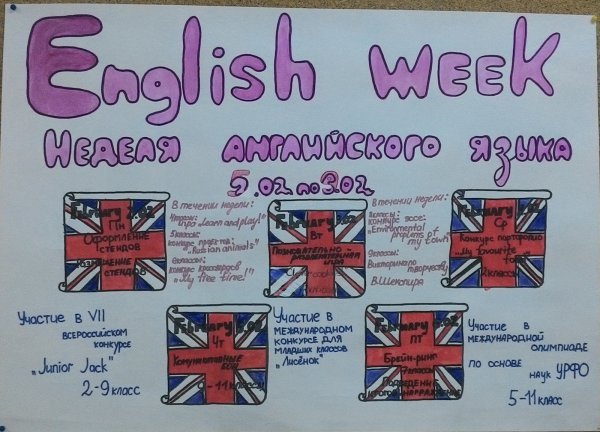 English WEEK
НЕДЕЛЯ АНГЛИЙСКОГО ЯЗЫКА
5.02 по 9.02
February 5.02
Пн
Оформление
стендов
Размещение
стендов
В течении недели:
4классы:
игра „Learn and play!"
5классы:
конкурс проектов:
„Russian animals"
6классы:
конкурс кроссвордов
„My free time!"
February
Вт
Познавательно-
развлекательная
игра
В течении недели:
конкурс эссе:
„Environmental
problems of
my town"
9классы:
Викторина по
творчеству
В.Шекспира
February
Ср
Конкурс портфолио
„My favourite
2классы
Участие в VII
всероссийском
конкурсе
„Junior Jack"
2-9класс
February
Чт
Коммуникативные
бои
9-11классы
Участие в
международном
конкурсе для
младших классов
„Лисёнок"
February 9.02
ПТ
Брейн-ринг
7классы
Подведение
итогов, награждение
Участие в
международной
олимпиаде
по основе
наук УРФО
5-11класс